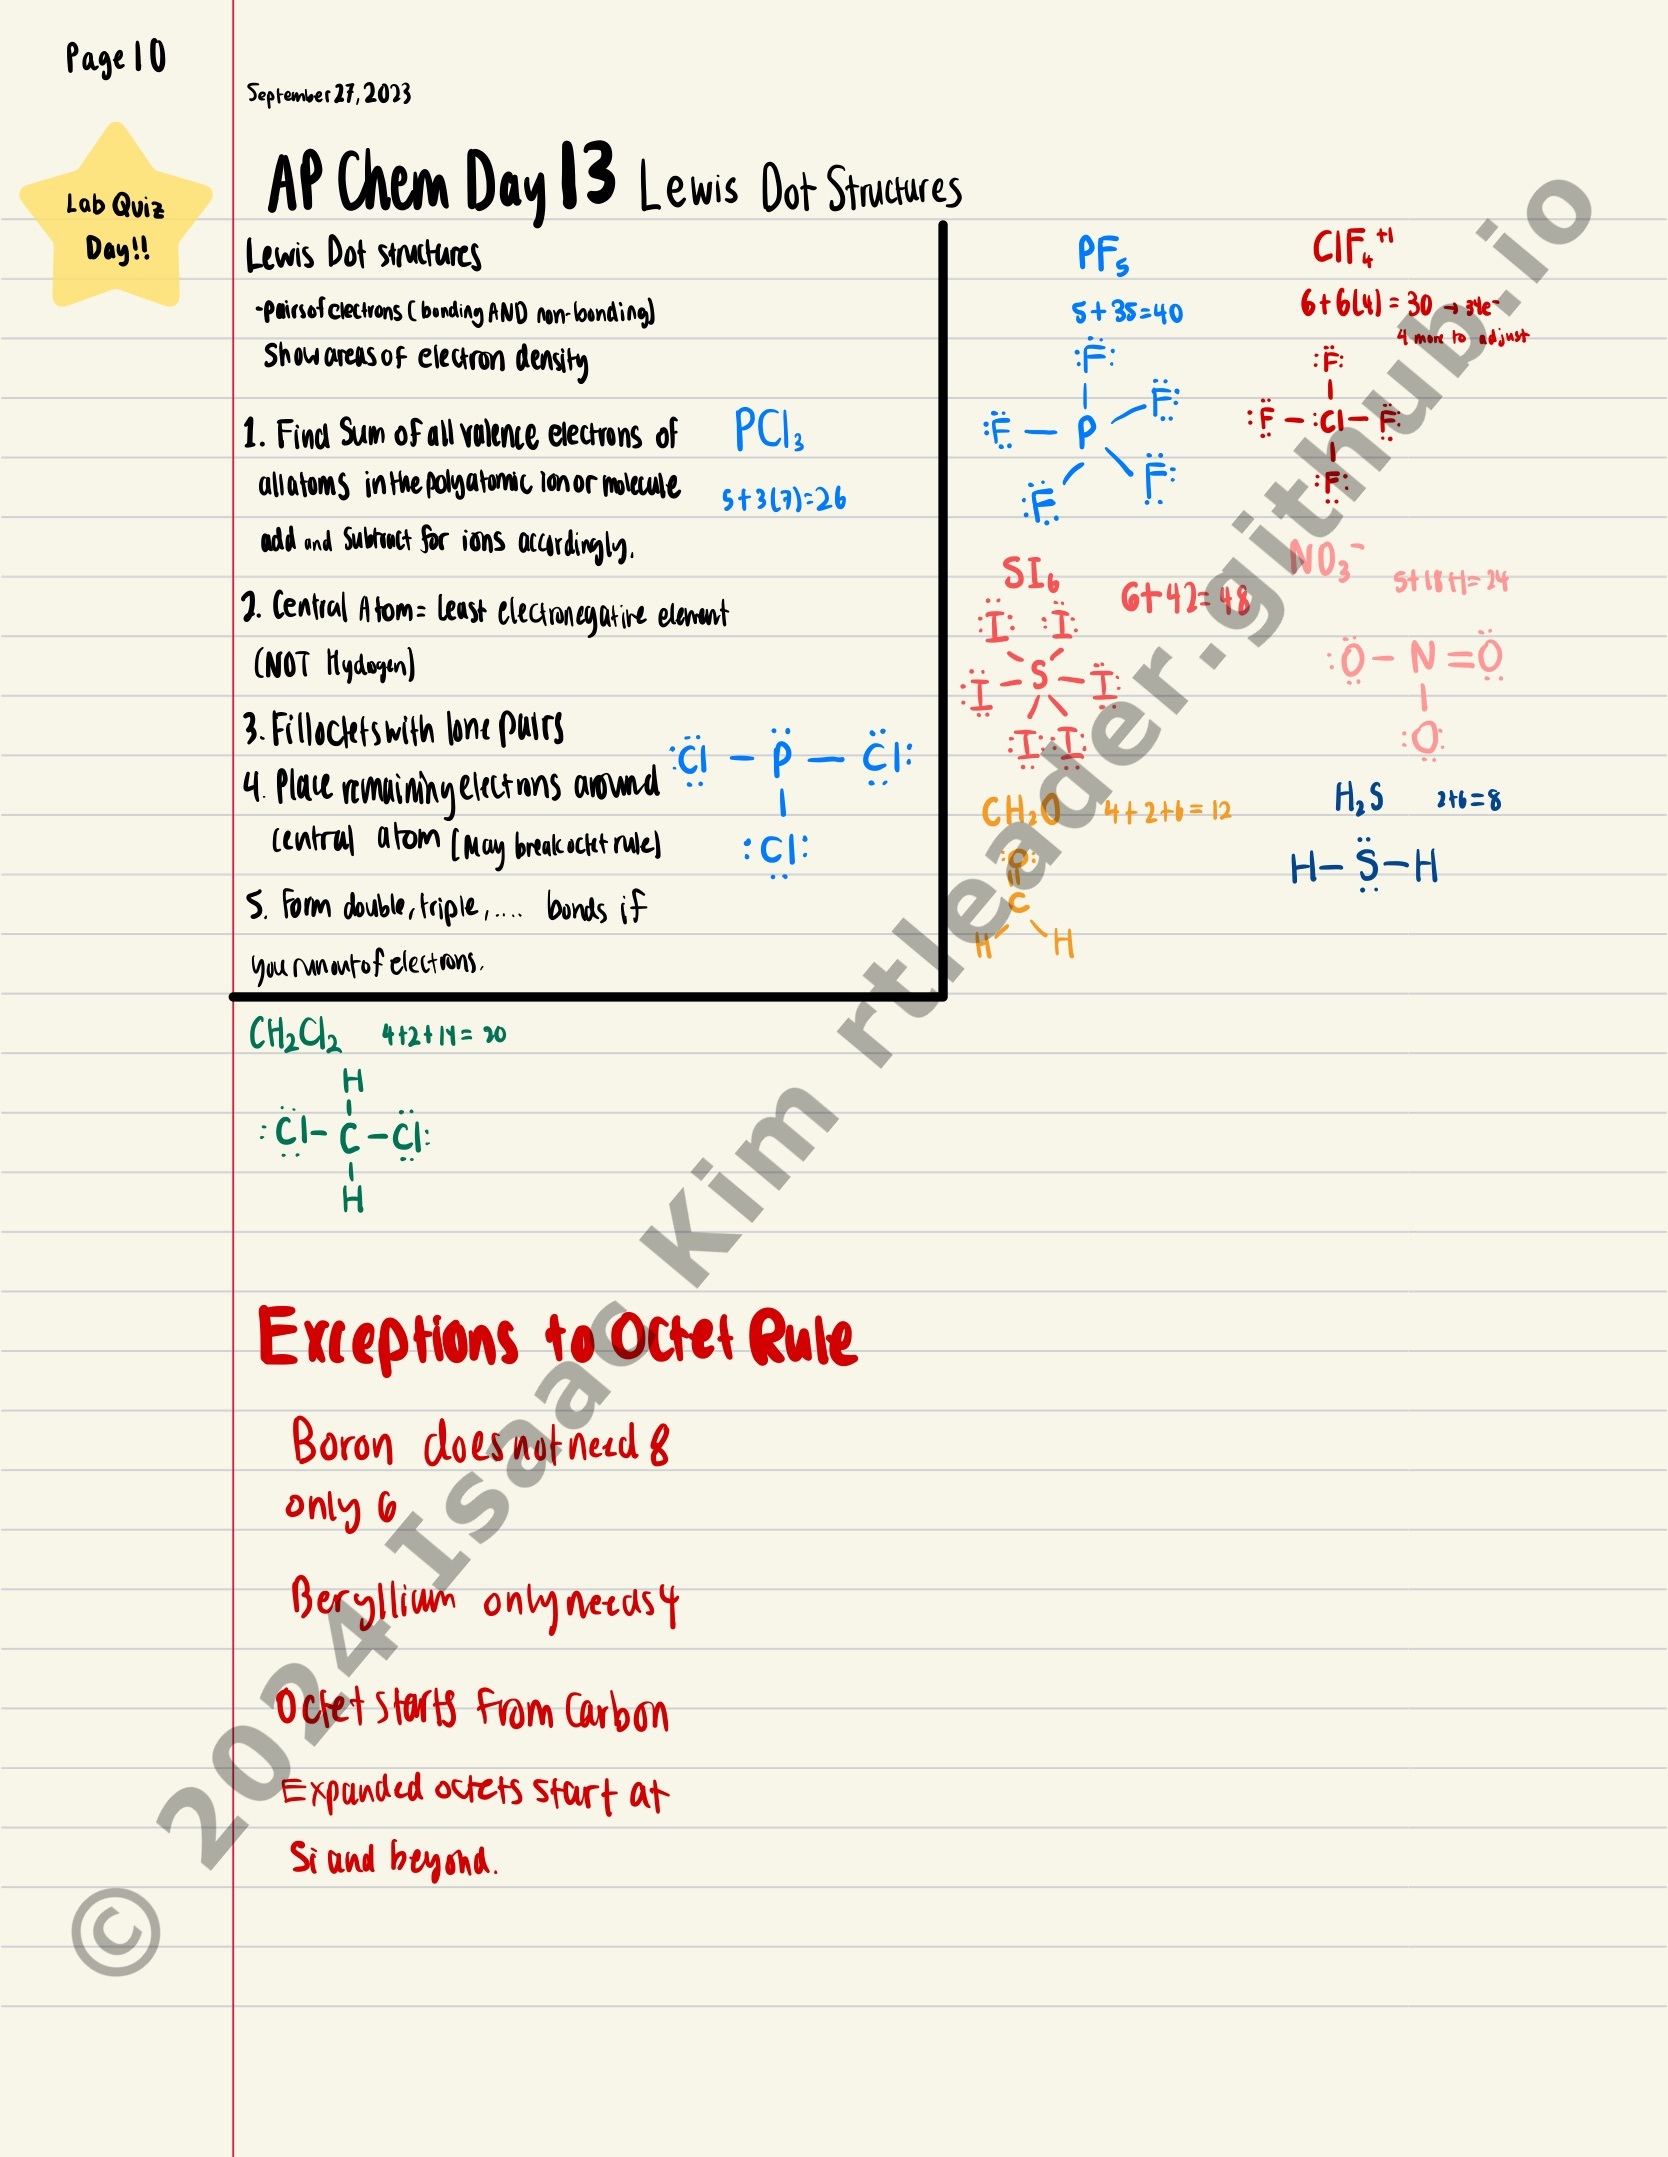 Page 10
Lab Quiz
Day!!
September 27, 2023
AP Chem Day 13 Lewis Dot Structures
Lewis Dot structures
-pairs of electrons (bonding AND non-bonding)
Show areas of electron density
1. Find Sum of all valence electrons of
all atoms in the polyatomic ion or molecule
add and subtract for ions accordingly.
PCl₃
5+3(7)=26
2. Central Atom = Least electronegative element
(NOT Hydogen)
3. Fill octets with lone pairs
4. Place remaining electrons around
central atom (May break octet rule)
Cl — P — Cl
Cl
5. Form double, triple, .... bonds if
you run out of electrons.
PF₅
5+35=40
F
F
F — P
F
F
ClF₄⁺¹
6+6(4)=30 → 34e⁻
4 more to adjust
F
F — Cl — F
F
SI₆
6+42=48
I I
I — S — I
I I
NO₃⁻
5+18+1=24
O — N = O
O
CH₂O
4+2+6=12
O
C
H H
H₂S
2+6=8
H — S — H
CH₂Cl₂
4+2+14=20
H
Cl — C — Cl
H
Exceptions to Octet Rule
Boron does not need 8
only 6
Beryllium only needs 4
Octet starts from Carbon
Expanded octets start at
Si and beyond.
© 2024 Isaac Kim rtleader.github.io